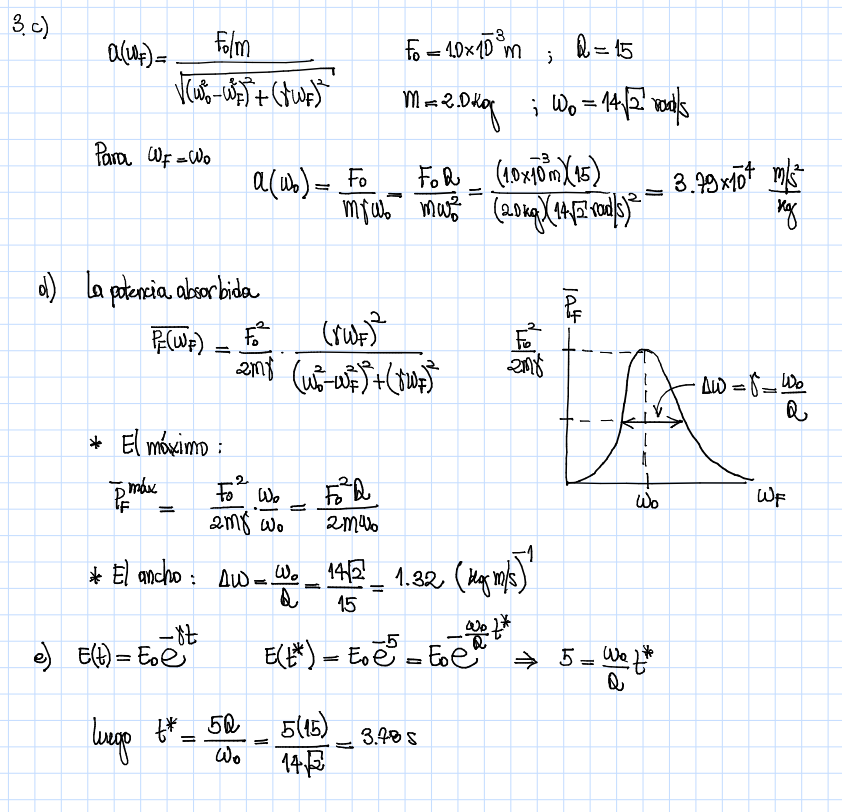 3. c)
a(ω_F) = (F₀/m) / √((ω₀² - ω_F²)² + (γω_F)²)    F₀ = 1.0×10⁻³ m ; Q = 15
m = 2.0 kg ; ω₀ = 14√2 rad/s
Para ω_F = ω₀
a(ω₀) = F₀/(mγω₀) = F₀Q/(mω₀²) = (1.0×10⁻³ m)(15)/((2.0 kg)(14√2 rad/s)²) = 3.79×10⁻⁴ (m/s²)/kg
d) La potencia absorbida
P̄_F(ω_F) = F₀²/(2mγ) · (γω_F)²/((ω₀² - ω_F²)² + (γω_F)²)
P̄_F
F₀²/(2mγ)
Δω = γ = ω₀/Q
ω₀    ω_F
* El máximo :
P̄_F^máx = F₀²/(2mγ) · ω₀/ω₀ = F₀²Q/(2mω₀)
* El ancho : Δω = ω₀/Q = 14√2/15 = 1.32 (kg m/s)⁻¹
e) E(t) = E₀e^(-γt)    E(t*) = E₀e⁻⁵ = E₀e^(-(ω₀/Q)t*) ⇒ 5 = (ω₀/Q) t*
luego t* = 5Q/ω₀ = 5(15)/(14√2) = 3.78 s